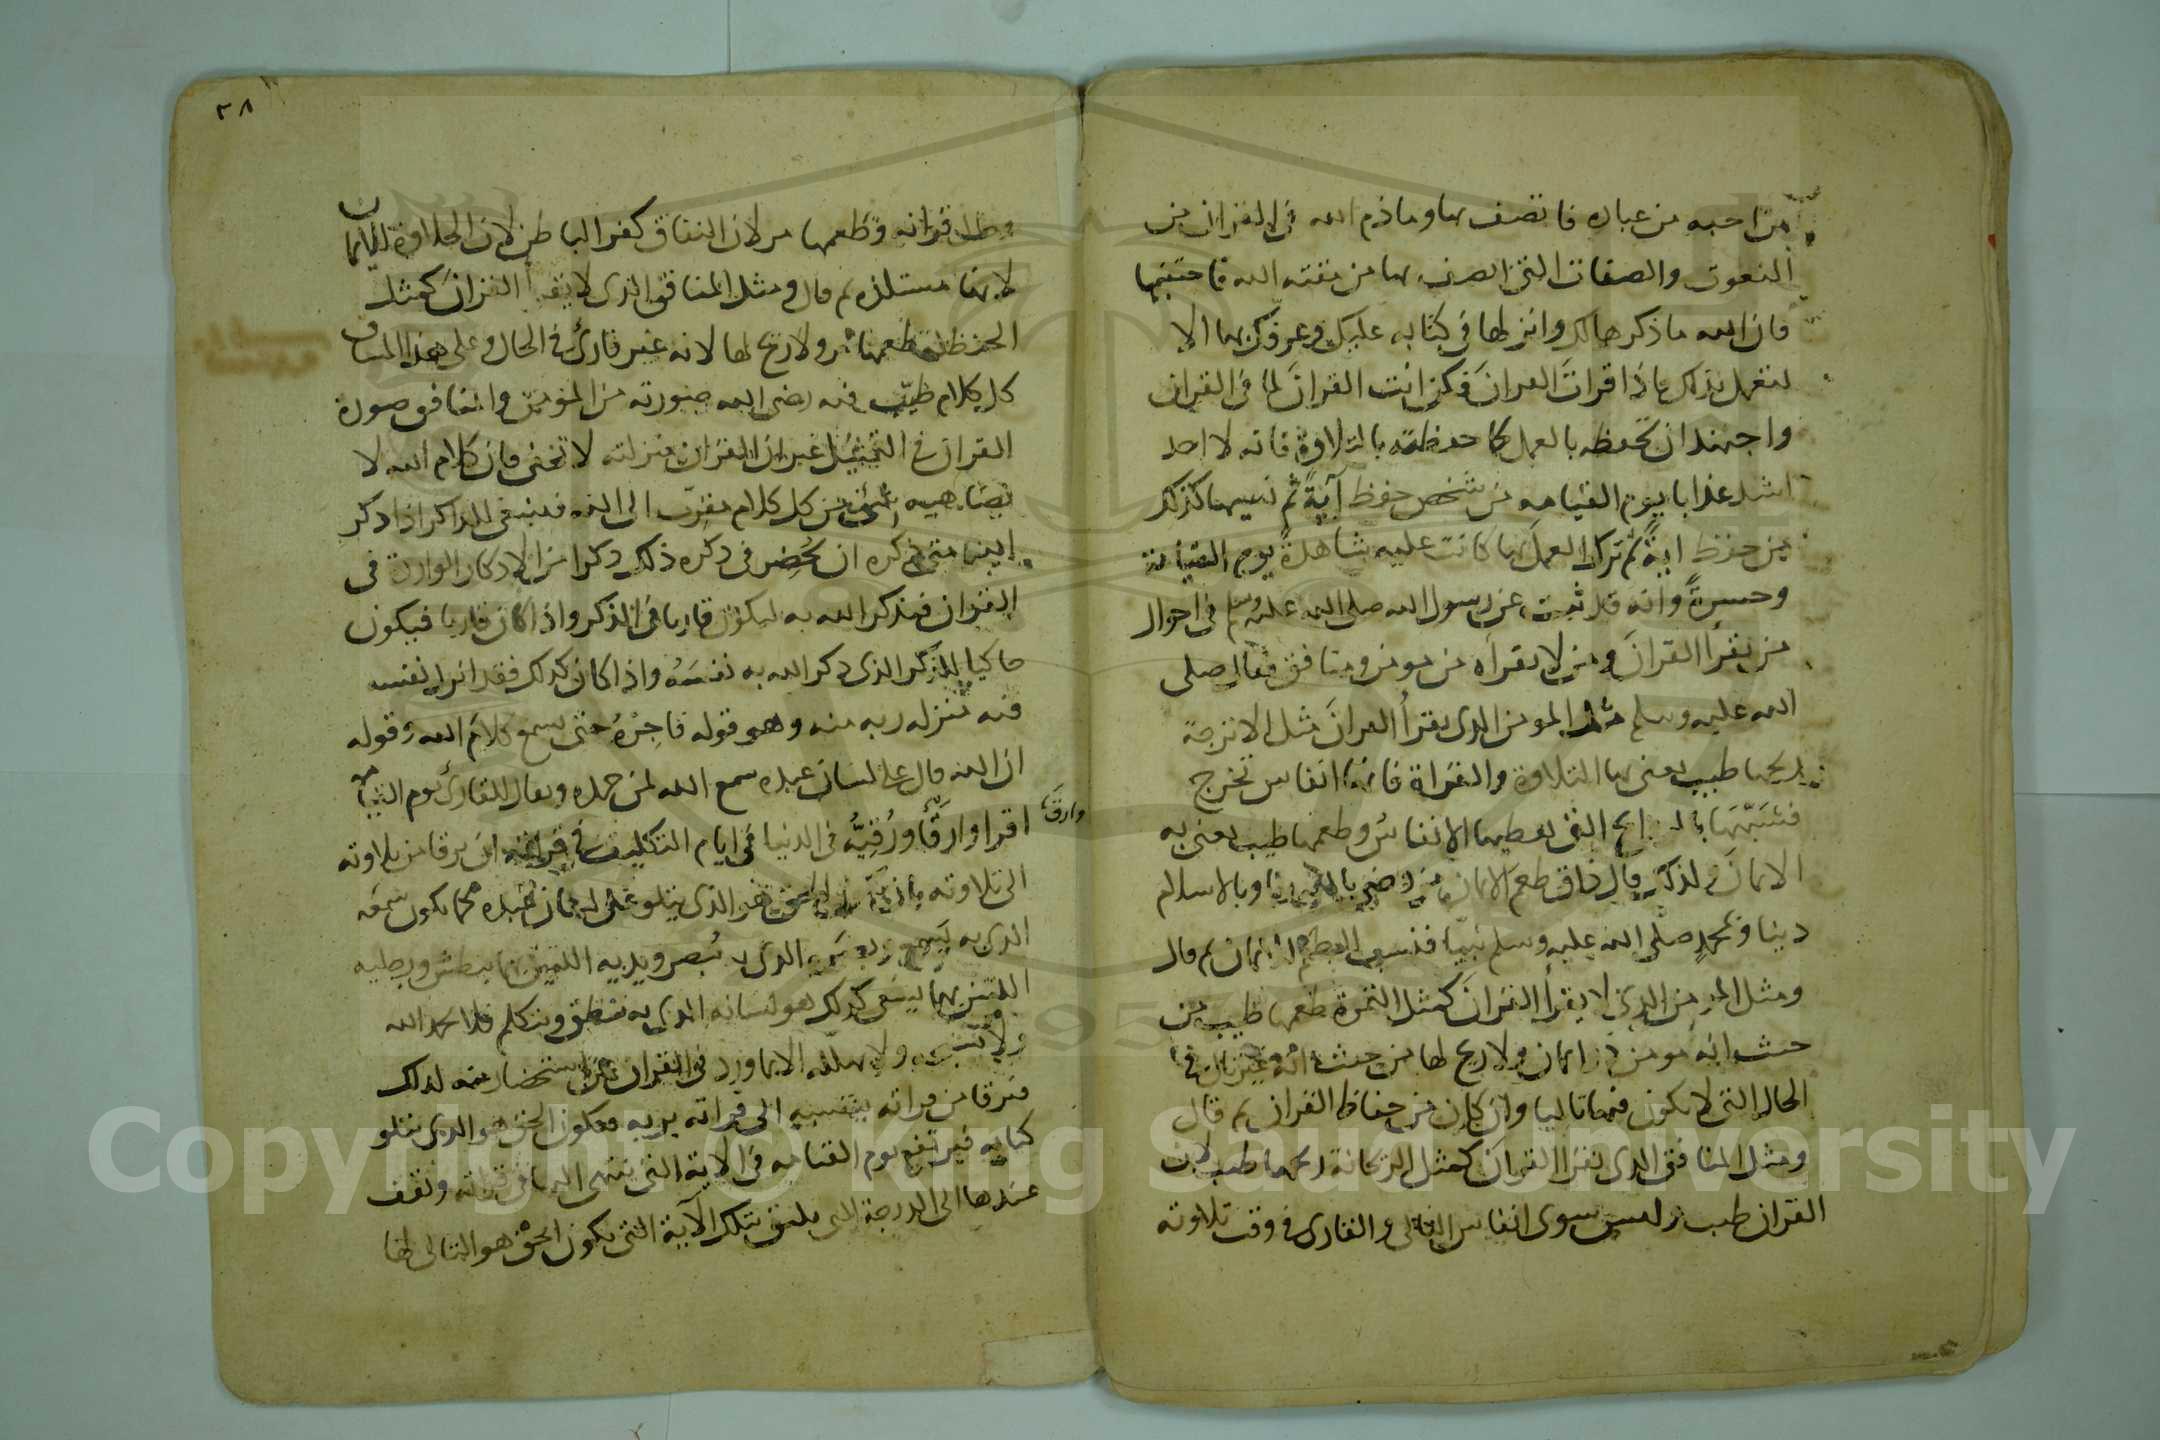 من احبه من عباده فاتصف بها وما ذم الله في القران من
النعوت والصفات التي اتصف بها من مقته الله فاجتنبها
فان الله ما ذكرها لك وانزلها في كتابه عليك وعرفك بها الا
لتعمل بذلك فاذا قرات القران فكن انت القران لما في القران
واجهد ان تحفظه بالعمل كما حفظته بالتلاوة فانه لا احد
اشد عذابا يوم القيامه من شخص حفظ آية ثم نسيها كذلك
من حفظ اية ثم ترك العمل بها كانت عليه شاهدة يوم القيامة
وحسرة وانه قد ثبت عن رسول الله صلى الله عليه وسلم في احوال
من يقرأ القران ومن لا يقراه من مومن ومنافق فقال صلى
الله عليه وسلم مثل المومن الذي يقرأ القران مثل الاترجة
ريحها طيب يعني بها التلاوة والقراة فانها انفاس تخرج
فشبهها بالروايح التي تعطيها الانفاس وطعمها طيب يعني به
الايمان ولذلك قال ذاق طعم الايمان من رضي بالله ربا وبالاسلام
دينا وبمحمد صلى الله عليه وسلم نبيا فنسب الطعم للايمان ثم قال
ومثل المومن الذي لا يقرأ القران كمثل التمرة طعمها طيب من
حيث انه مومن ذو ايمان ولا ريح لها من حيث انه غير تال في
الحال التي لا يكون فيها تاليا وان كان من حفاظ القران ثم قال
ومثل المنافق الذي يقرا القران كمثل الريحانة ريحها طيب لان
القران طيب وليس سوى انفاس التالي والقاري في وقت تلاوته
٣٨
وحال قرانه وطعمها مر لان النفاق كفر الباطن لان الحلاوة للايمان
لانها مستلذه ثم قال ومثل المنافق الذي لا يقرأ القران كمثل
الحنظلة طعمها مر ولا ريح لها لانه غير قارئ في الحال وعلى هذا المساق
كل كلام طيب فيه رضى الله صورته من المؤمن والمنافق صورة
القران في التمثيل غير ان القران منزلته لا تخفى فان كلام الله لا
يضاهيه شئ من كل كلام مقرب الى الله فينبغي للذاكر اذا ذكر
الله متى ذكره ان يحضر في ذكره ذلك ذكرا من الاذكار الواردة في
القران فيذكر الله به ليكون قاريا في الذكر واذا كان قاريا فيكون
حاكيا للذكر الذي ذكر الله به نفسه واذا كان كذلك فقد انزل نفسه
فيه منزله ربه منه وهو قوله فاجره حتى يسمع كلام الله وقوله
ان الله قال على لسان عبده سمع الله لمن حمده ويقال للقارئ يوم القيامة
اقرا وارق ورقيه في الدنيا في ايام التكليف في قراته ان يرقا من تلاوته
وارق
الى تلاوته بان يكون الحق هو الذي يتلو على لسان عبده كما يكون سمعه
الذي به يسمع وبصره الذي به يبصر ويديه اللتين بها يبطش ورجليه
اللتين بها يسعى كذلك هو لسانه الذي به ينطق ويتكلم فلا يحمد الله
ولا يسبحه ولا يهلله الا بما ورد في القران عن استحضار منه لذلك
فيرقا من قراته بنفسه الى قراته بربه فيكون الحق هو الذي يتلو
كتابه فيرتفع يوم القيامه في الاية التي ينتهي اليها في قراته ويقف
عندها الى الدرجة التي يليق بتلك الآية التي يكون الحق هو التالي لها
Copyright © King Saud University